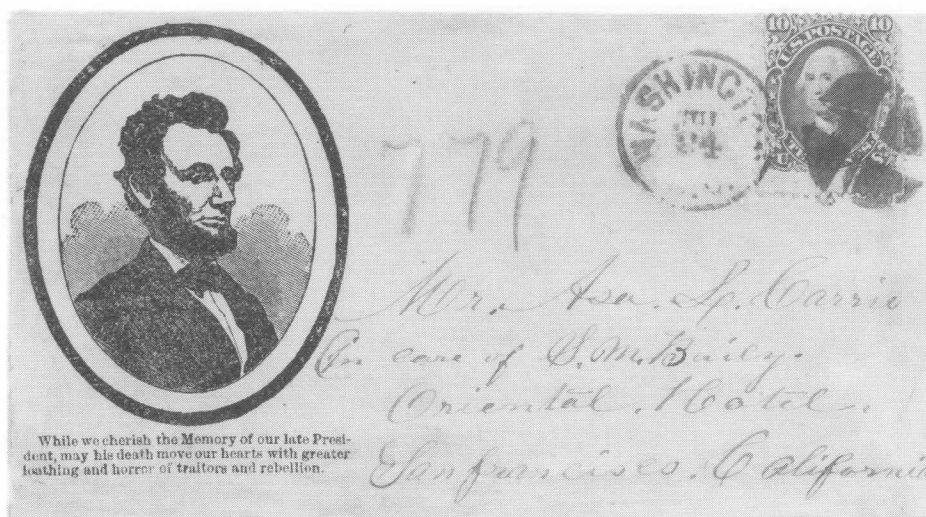 10 10
U.S. POSTAGE
WASHINGT
24
779
Mr. Asa. L. Carrie
In care of S. M. Baily.
Oriental. Hotel.
San francisco. California
While we cherish the Memory of our late Presi-
dent, may his death move our hearts with greater
loathing and horror of traitors and rebellion.